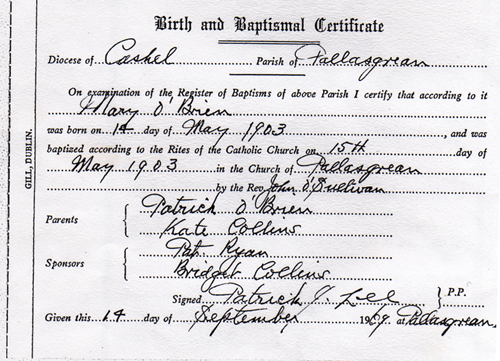 Birth and Baptismal Certificate
Diocese of Cashel Parish of Pallasgrean
On examination of the Register of Baptisms of above Parish I certify that according to it
Mary O'Brien
was born on 14 day of May 1903, and was
baptized according to the Rites of the Catholic Church on 15th day of
May 1903 in the Church of Pallasgrean
by the Rev. John O'Sullivan
Parents { Patrick O'Brien
Kate Collins
Sponsors { Pat. Ryan
Bridget Collins
Signed Patrick J. Lee } P.P.
Given this 14 day of September 1969 at Pallasgrean.
GILL, DUBLIN.